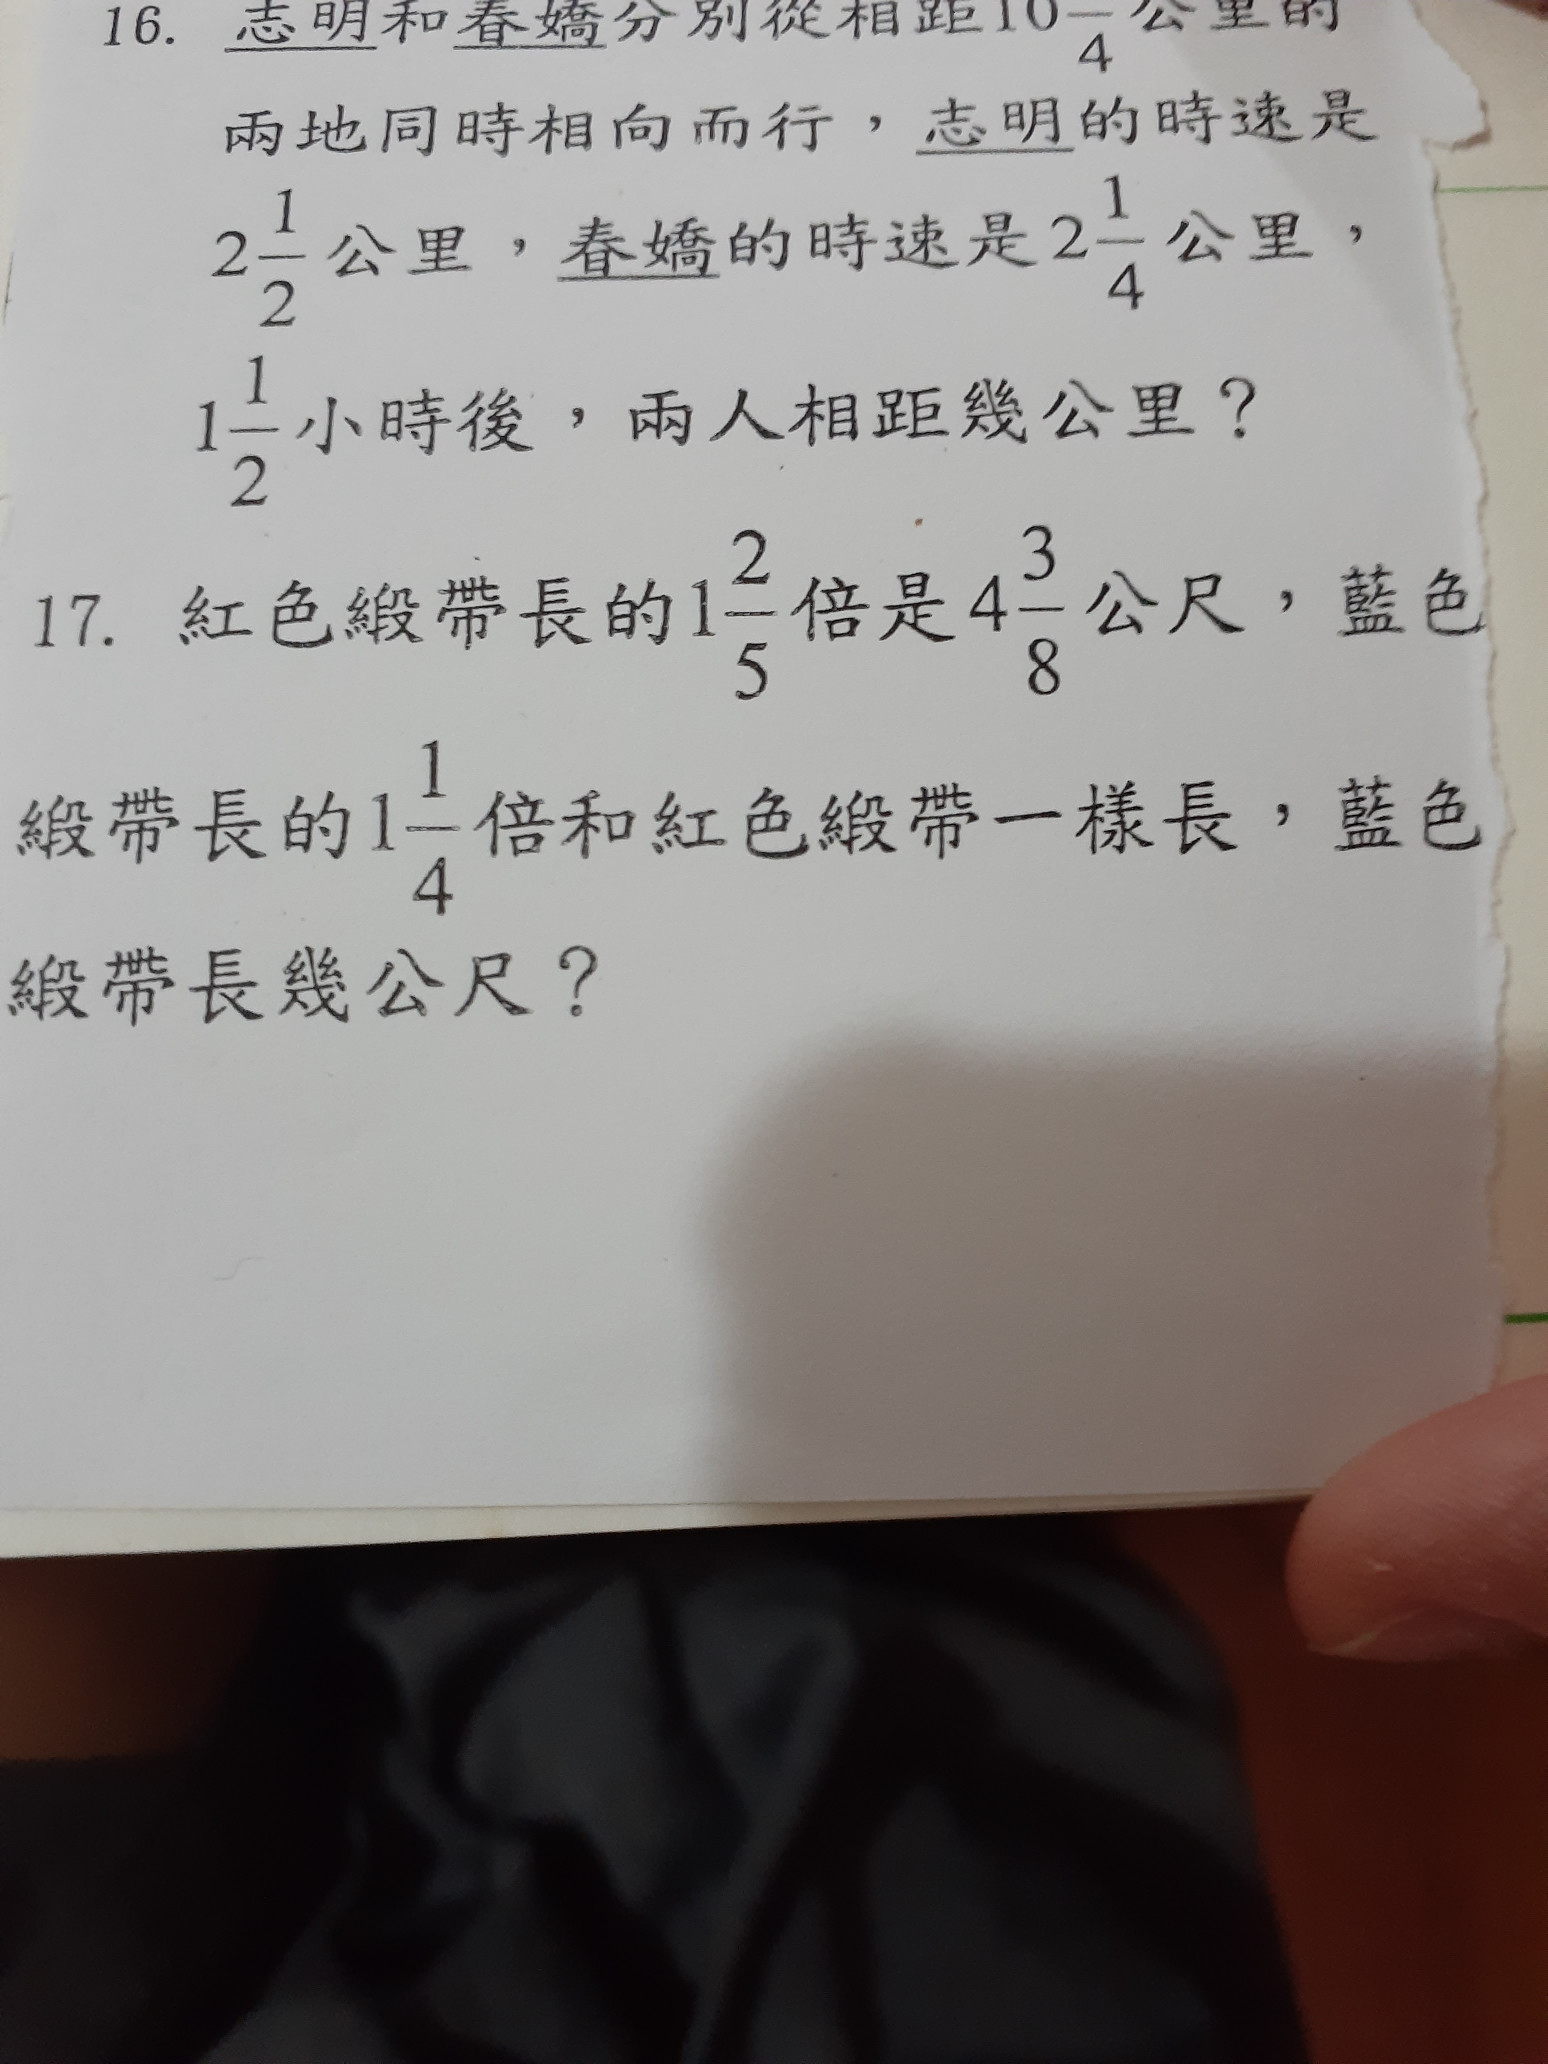 16. 志明和春嬌分別從相距10 /4公里的
兩地同時相向而行，志明的時速是
2 1/2公里，春嬌的時速是2 1/4公里，
1 1/2小時後，兩人相距幾公里？
17. 紅色緞帶長的1 2/5倍是4 3/8公尺，藍色
緞帶長的1 1/4倍和紅色緞帶一樣長，藍色
緞帶長幾公尺？